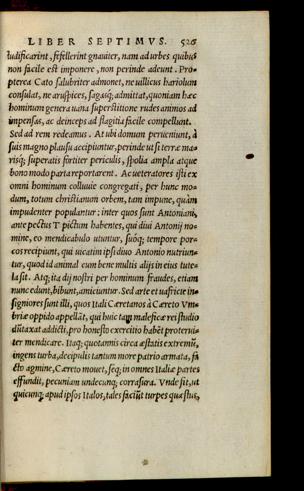 LIBER SEPTIMVS. 526
ludificarint, fefellerint gnauiter, nam ad urbes quibus
non facile est imponere, non perinde adeunt. Pro-
pterea Cato salubriter admonet, ne uillicus hariolum
consulat, ne aruspices, sagasq; admittat, quoniam hæc
hominum genera uana superstitione rudes animos ad
impensas, ac deinceps ad flagitia facile compellunt.
Sed ad rem redeamus. At ubi domum peruenuint, à
suis magno plausu accipiuntur, perinde ut si terræ ma-
risq; superatis fortiter periculis, spolia ampla atque
bono modo parta reportarent. Ac ueteratores isti ex
omni hominum colluuie congregati, per hunc mo-
dum, totum christianum orbem, tam impune, quàm
impudenter populantur: inter quos sunt Antoniani,
ante pectus T pictum habentes, qui diui Antonij no-
mine, eo mendicabulo utuntur, suósq; tempore por-
cos recipiunt, qui uicatim ipsi diuo Antonio nutriun-
tur, quod id animal cum bene multis alijs in eius tute-
la sit. Atq; ita dij nostri per hominum fraudes, etiam
nunc edunt, bibunt, amiciuntur. Sed arte et uafricie in-
signiores sunt illi, quos Itali Cæretanos à Cæreto Vm-
briæ oppido appellãt, qui huic tam maleficæ rei studio
dũtaxat addicti, pro honesto exercitio habẽt proterui-
ter mendicare. Itaq; quotannis circa æstatis extremũ,
ingens turba, decipulis tantum more patrio armata, fa
cto agmine, Cæreto mouet, seq; in omnes Italiæ partes
effundit, pecuniam undecunq; corrasura. Vnde fit, ut
quicunq; apud ipsos Italos, tales faciũt turpes quæstus,